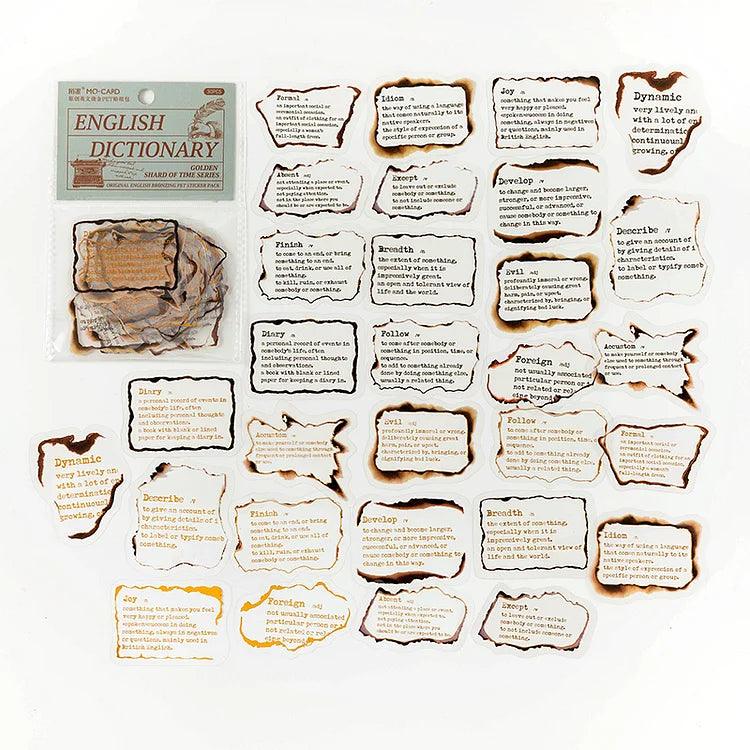 MO·CARD
30PCS
ENGLISH
DICTIONARY
GOLDEN
SHARD OF TIME SERIES
ORIGINAL ENGLISH BRONZING PET STICKER PACK
Formal /adj
an important social or
ceremonial occasion.
an outfit of clothing for an
important social occasion,
especially a woman's
full-length dress.
Idiom /n
the way of using a language
that comes naturally to its
native speakers.
the style of expression of a
specific person or group.
Joy /n
something that makes you feel
very happy or pleased.
<spoken>success in doing
something, always in negatives
or questions, mainly used in
British English.
Dynamic
very lively an
with a lot of en
determinatio
continuousl
growing, c
Absent /adj
not attending a place or event,
especially when expected to.
not paying attention.
not in the place where you
should be or are expected to be.
Except /v
to leave out or exclude
somebody or something.
to not include someone or
something.
Develop /v
to change and become larger,
stronger, or more impressive,
successful, or advanced, or
cause somebody or something to
change in this way.
Describe /v
to give an account of
by giving details of i
characteristics.
to label or typify someb
something.
Finish /v
to come to an end, or bring
something to an end.
to eat, drink, or use all of
something.
to kill, ruin, or exhaust
somebody or something.
Breadth /n
the extent of something,
especially when it is
impressively great.
an open and tolerant view of
life and the world.
Evil /adj
profoundly immoral or wrong.
deliberately causing great
harm, pain, or upset.
characterized by, bringing, or
signifying bad luck.
Diary /n
a personal record of events in
somebody's life, often
including personal thoughts
and observations.
a book with blank or lined
paper for keeping a diary in.
Follow /v
to come after somebody or
something in position, time, or
sequence.
to add to something already
done by doing something else,
usually a related thing.
Foreign /adj
not usually associated
particular person or t
not related or rel
eing beyond
Accustom /v
to make yourself or somebody
else used to something through
frequent or prolonged contact
or use.
Diary /n
a personal record of events in
somebody's life, often
including personal thoughts
and observations.
a book with blank or lined
paper for keeping a diary in.
Accustom /v
to make yourself or somebody
else used to something through
frequent or prolonged contact
or use.
Evil /adj
profoundly immoral or wrong.
deliberately causing great
harm, pain, or upset.
characterized by, bringing, or
signifying bad luck.
Follow /v
to come after somebody or
something in position, time, or
sequence.
to add to something already
done by doing something else,
usually a related thing.
Formal /adj
an important social or
ceremonial occasion.
an outfit of clothing for an
important social occasion,
especially a woman's
full-length dress.
Dynamic
very lively an
with a lot of en
determinatio
continuousl
growing, c
Describe /v
to give an account of
by giving details of i
characteristics.
to label or typify someb
something.
Finish /v
to come to an end, or bring
something to an end.
to eat, drink, or use all of
something.
to kill, ruin, or exhaust
somebody or something.
Develop /v
to change and become larger,
stronger, or more impressive,
successful, or advanced, or
cause somebody or something to
change in this way.
Breadth /n
the extent of something,
especially when it is
impressively great.
an open and tolerant view of
life and the world.
Idiom /n
the way of using a language
that comes naturally to its
native speakers.
the style of expression of a
specific person or group.
Joy /n
something that makes you feel
very happy or pleased.
<spoken>success in doing
something, always in negatives
or questions, mainly used in
British English.
Foreign /adj
not usually associated
particular person or t
not related or rel
eing beyond
Absent /adj
not attending a place or event,
especially when expected to.
not paying attention.
not in the place where you
should be or are expected to be.
Except /v
to leave out or exclude
somebody or something.
to not include someone or
something.